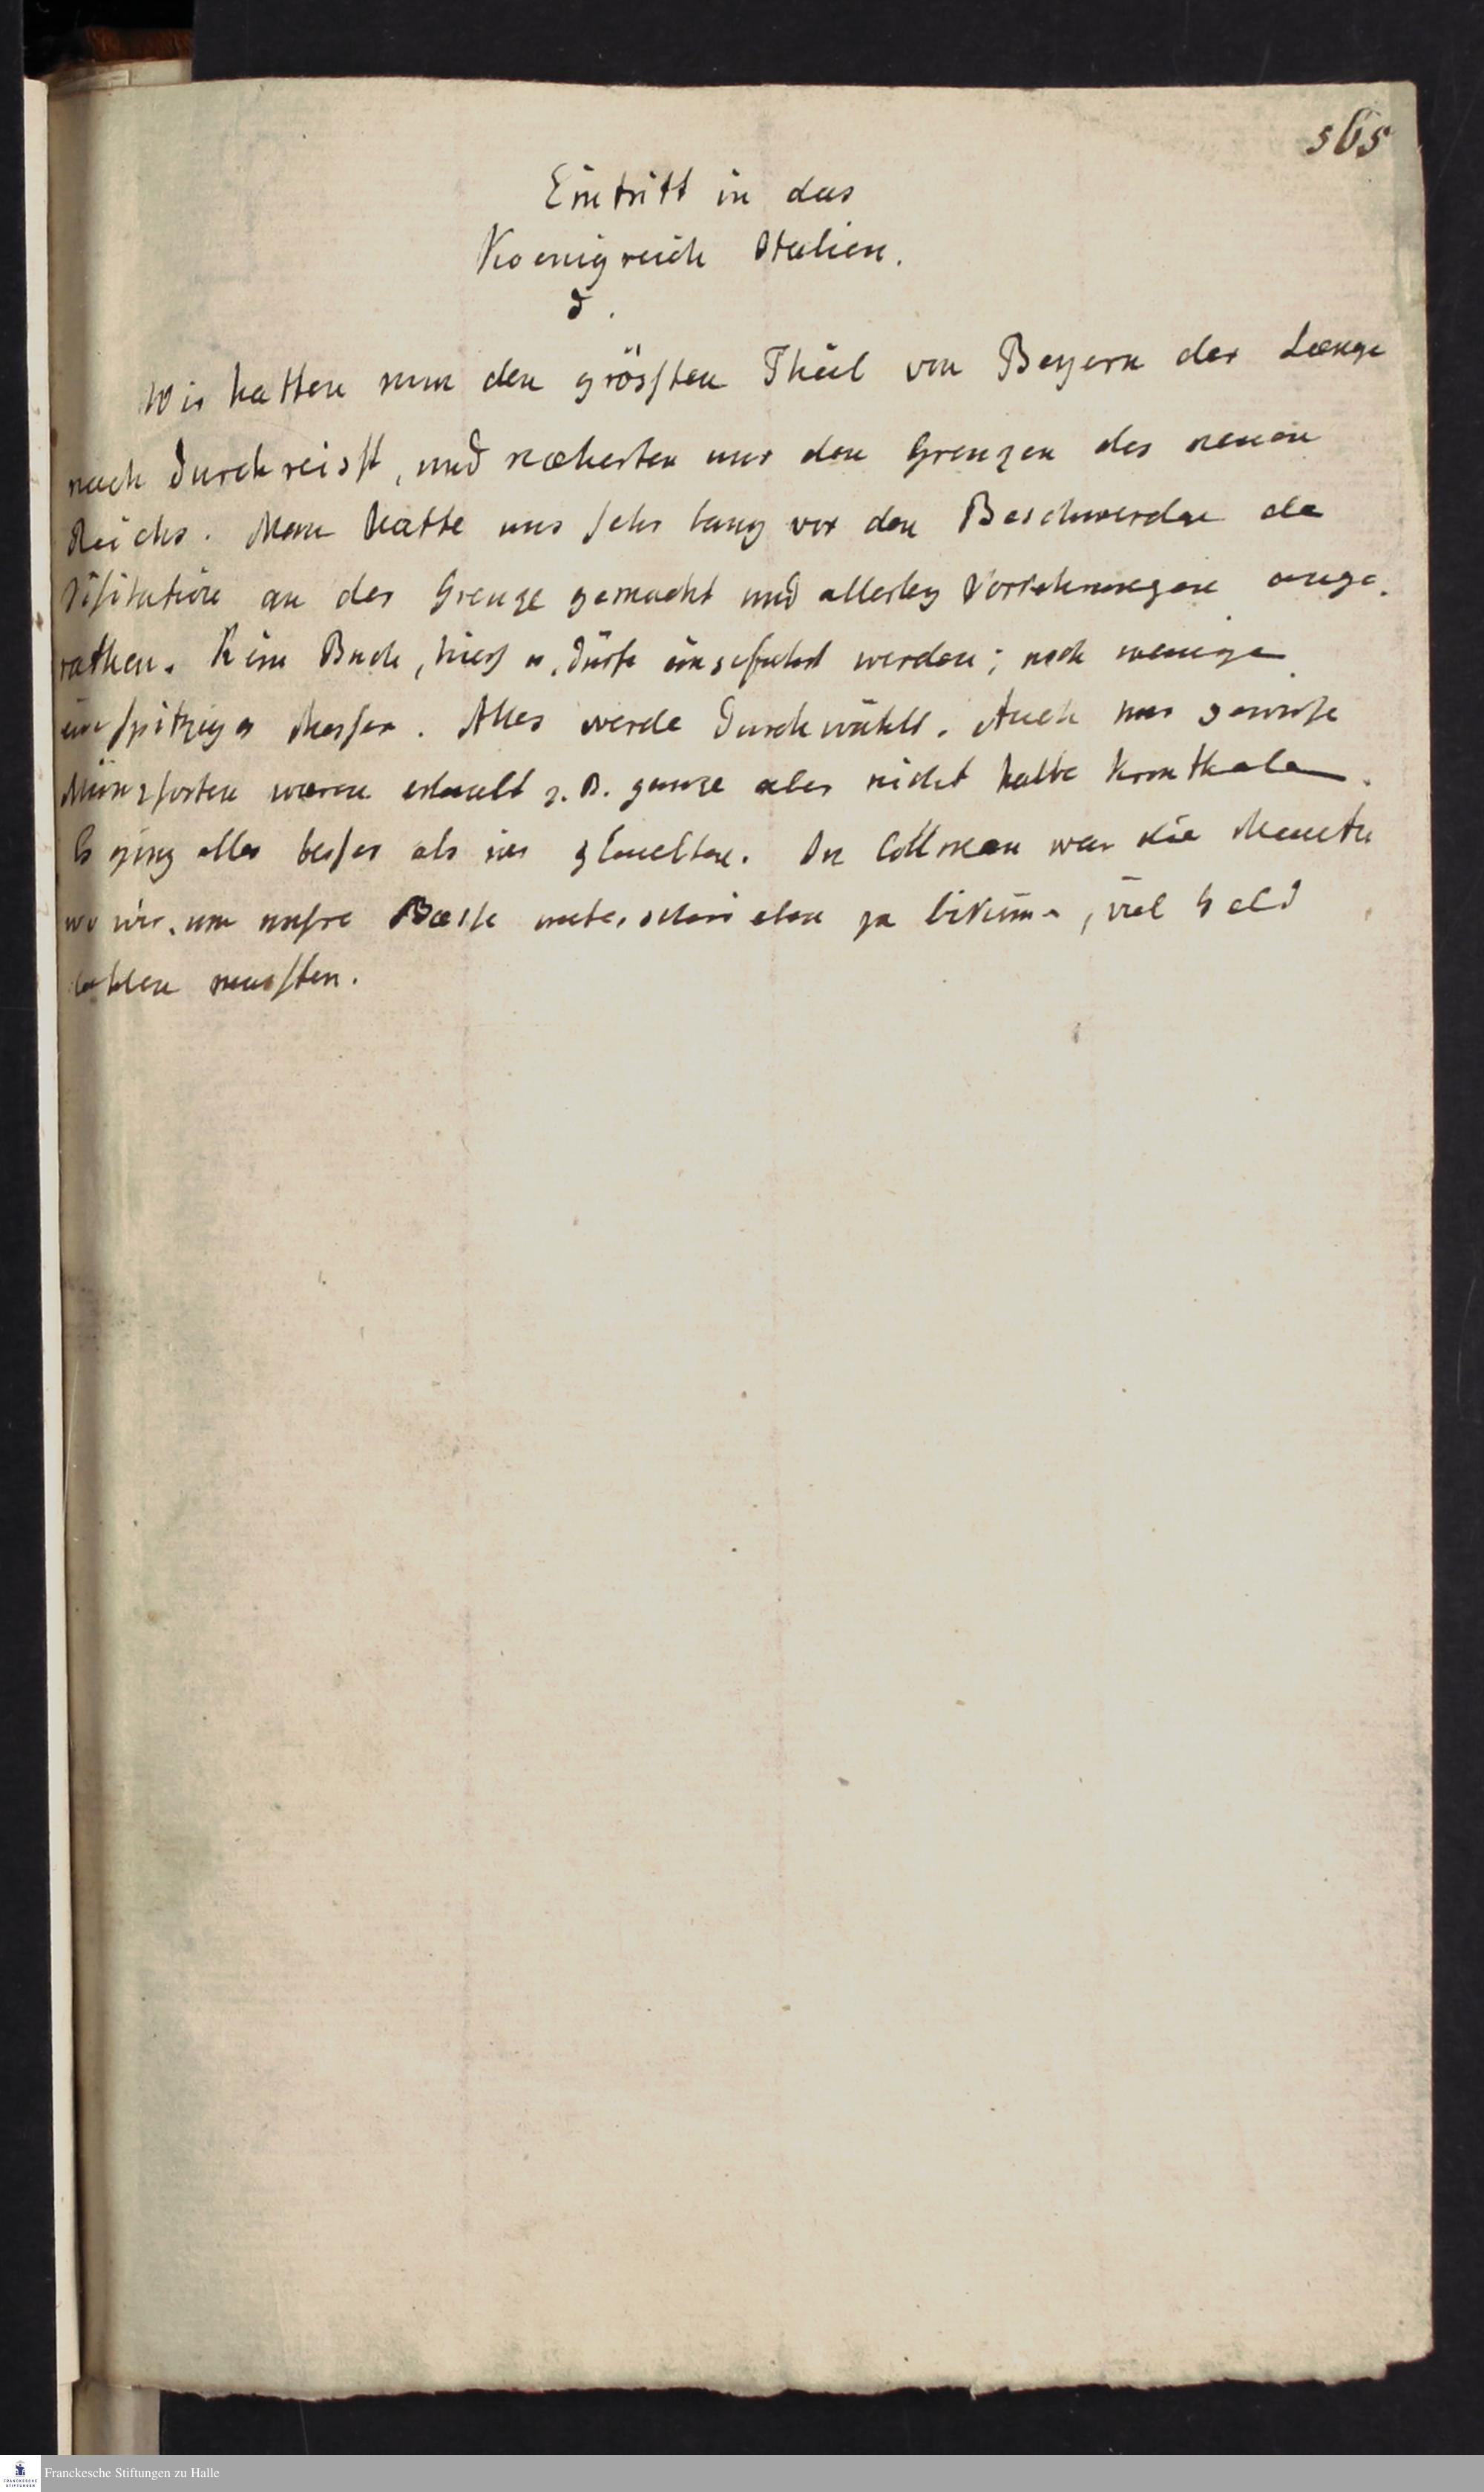 565
Eintritt in das
Koenigreich Italien.
d.
Wir hatten nun den grössten Theil von Beyern der Laenge
nach durchreisst, und naeherten uns den Grenzen des neuen
Reichs. Man hatte uns sehr bang vor den Beschwerden der
Visitation an der Grenze gemacht und allerley Vorkehrungen ange
rathen. Kein Buch, hiess es, dürfe eingeführt werden; noch weniger
ein spitziges Messer. Alles werde durchwühlt. Auch nur gewisse
Münzsorten waren erlaubt z. B. ganze aber nicht halbe Kronthaler.
Es ging alles besser als wir glaubten. In Collman war die Mauth
wo wir, um unsre Paesse unterschrieben zu bekommen, viel Geld
zahlen mussten.
Franckesche Stiftungen zu Halle